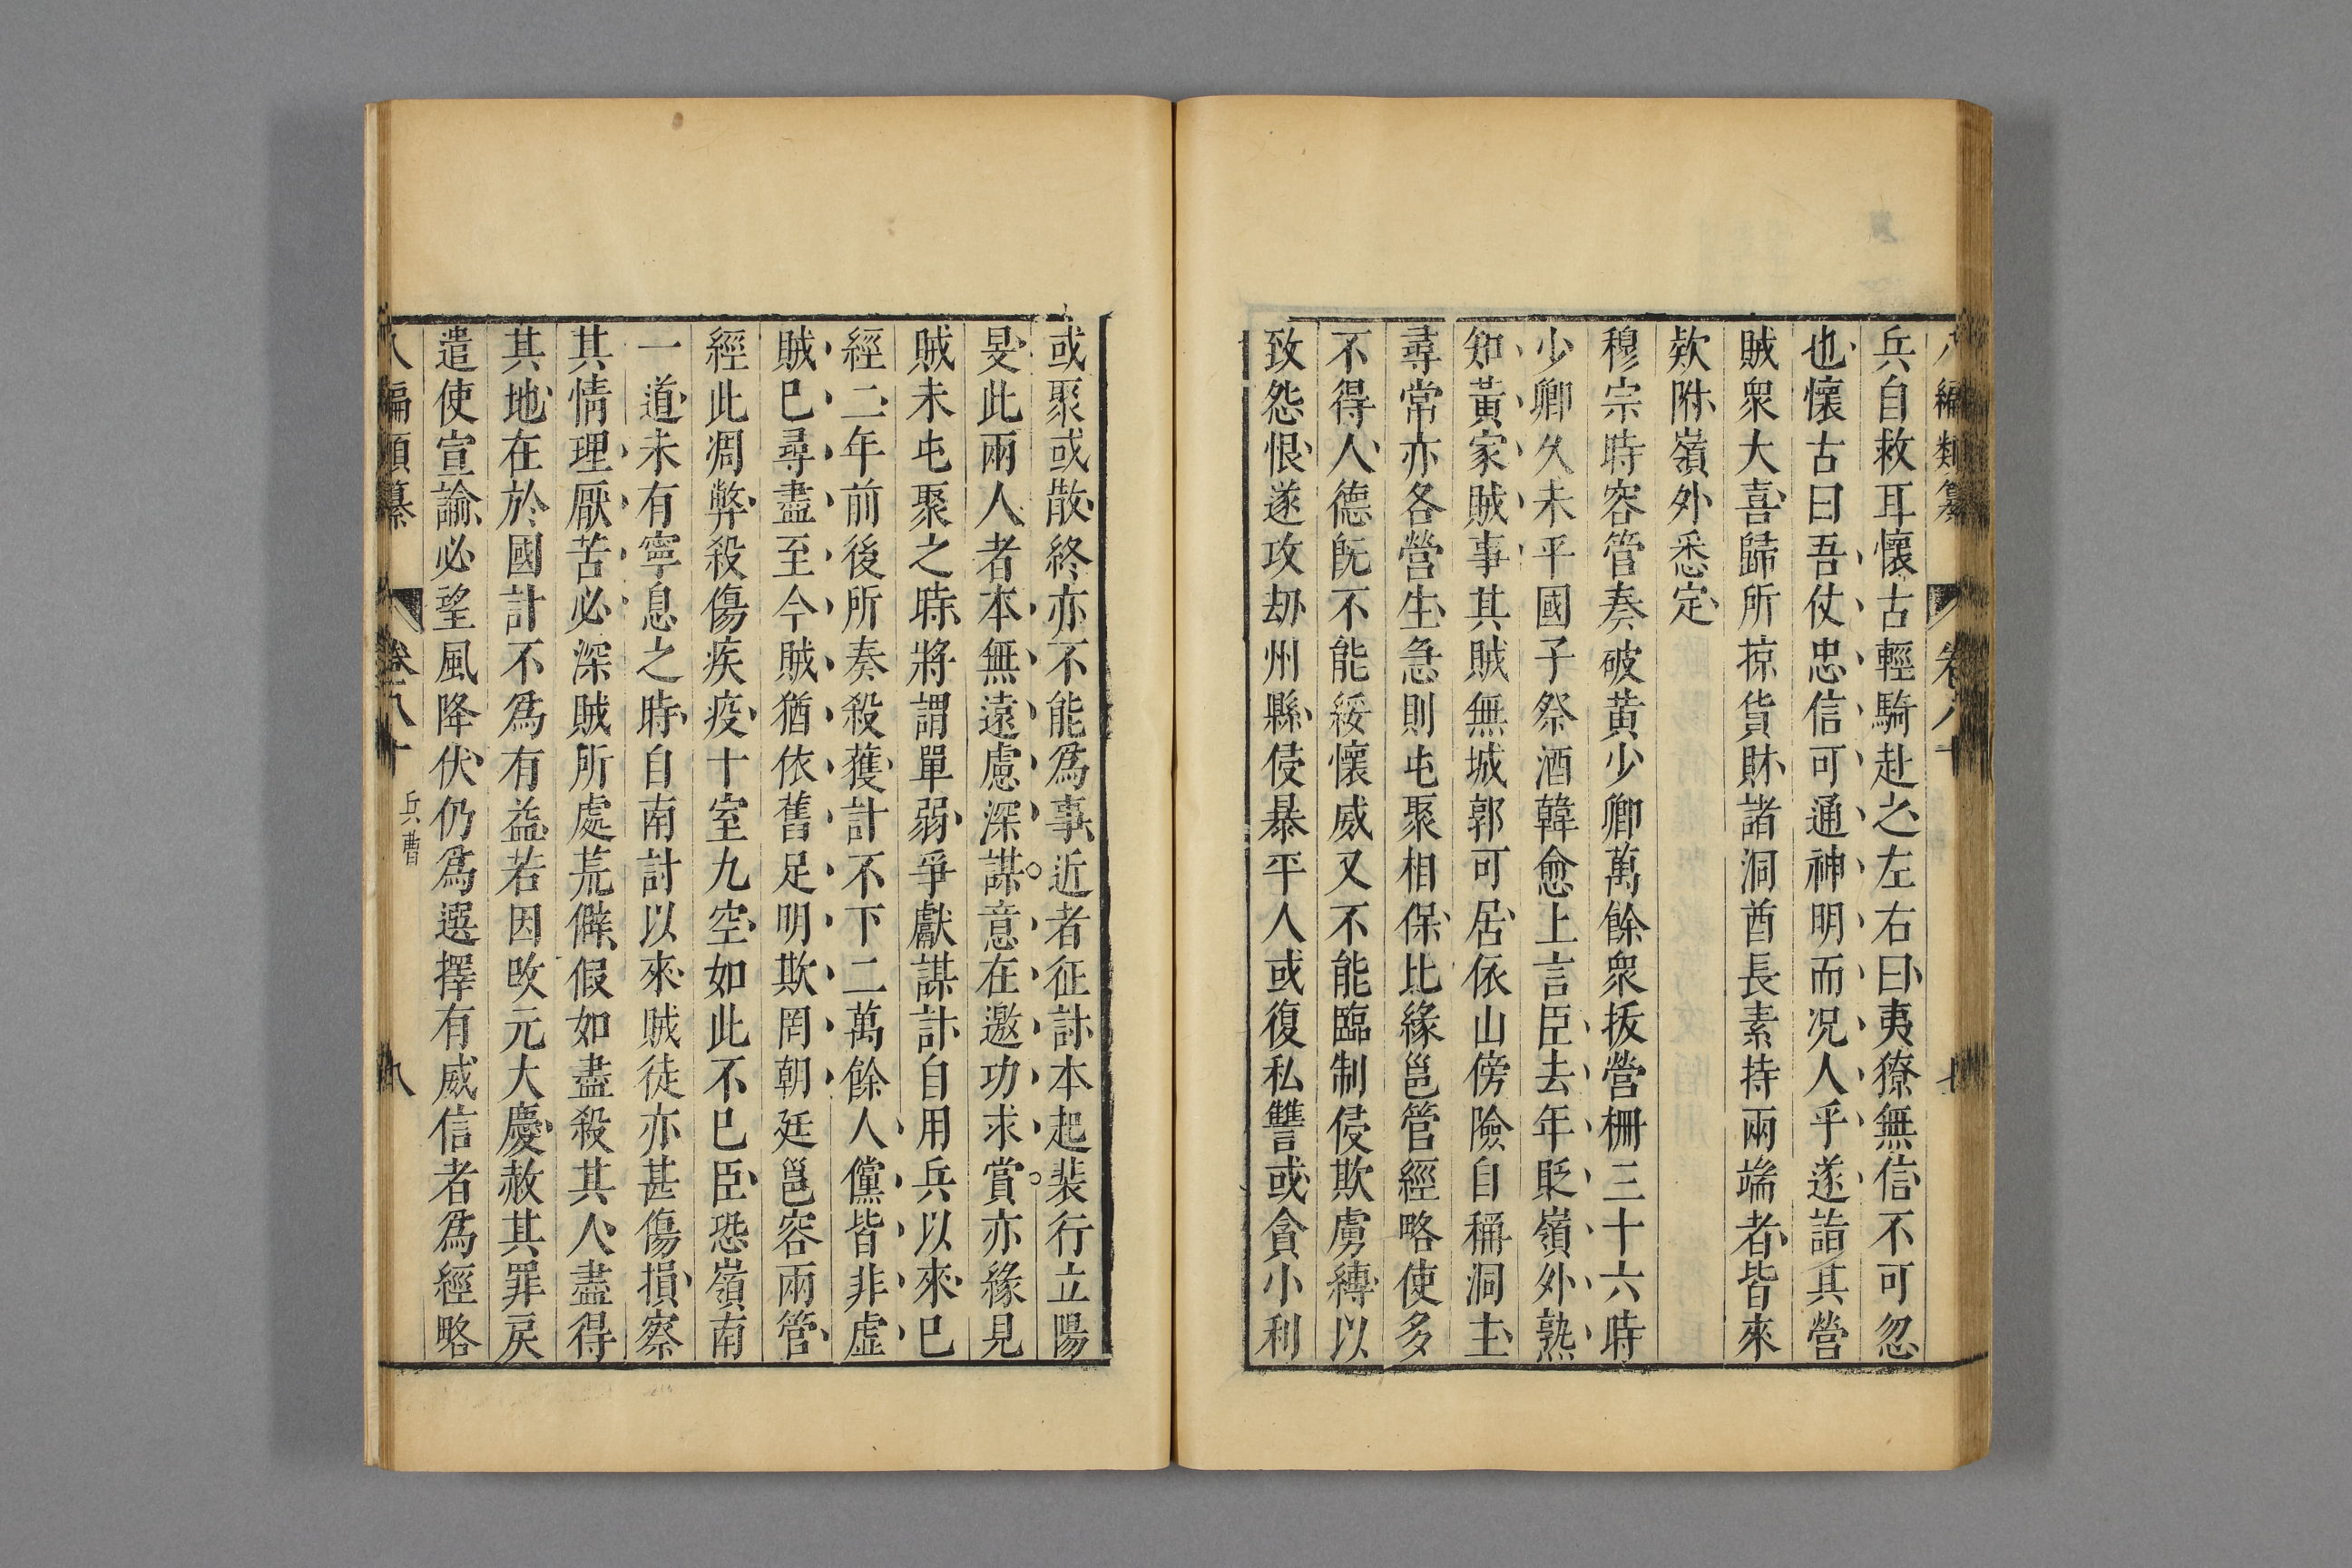 八編類纂 卷八十 七
兵自救耳懷古輕騎赴之左右曰夷獠無信不可忽
也懷古曰吾仗忠信可通神明而况人乎遂詣其營
賊衆大喜歸所掠貨財諸洞酋長素持兩端者皆來
欵附嶺外悉定
穆宗時容管奏破黄少卿萬餘衆拔營栅三十六時
少卿久未平國子祭酒韓愈上言臣去年貶嶺外熟
知黃家賊事其賊無城郭可居依山傍險自稱洞主
尋常亦各營生急則屯聚相保比緣邕管經略使多
不得人德旣不能綏懷威又不能臨制侵欺虜縛以
致怨恨遂攻刼州縣侵暴平人或復私讐或貪小利
或聚或散終亦不能爲事近者征討本起裴行立陽
旻此兩人者本無遠慮深謀意在邀功求賞亦緣見
賊未屯聚之時將謂單弱爭獻謀計自用兵以來已
經二年前後所奏殺獲計不下二萬餘人儻皆非虛
賊已尋盡至今賊猶依舊足明欺罔朝廷邕容兩管
經此凋弊殺傷疾疫十室九空如此不已臣恐嶺南
一道未有寧息之時自南討以來賊徒亦甚傷損察
其情理厭苦必深賊所處荒僻假如盡殺其人盡得
其地在於國計不爲有益若因改元大慶赦其罪戾
遣使宣諭必望風降伏仍爲選擇有威信者爲經略
八編類纂 卷八十 兵曹 八